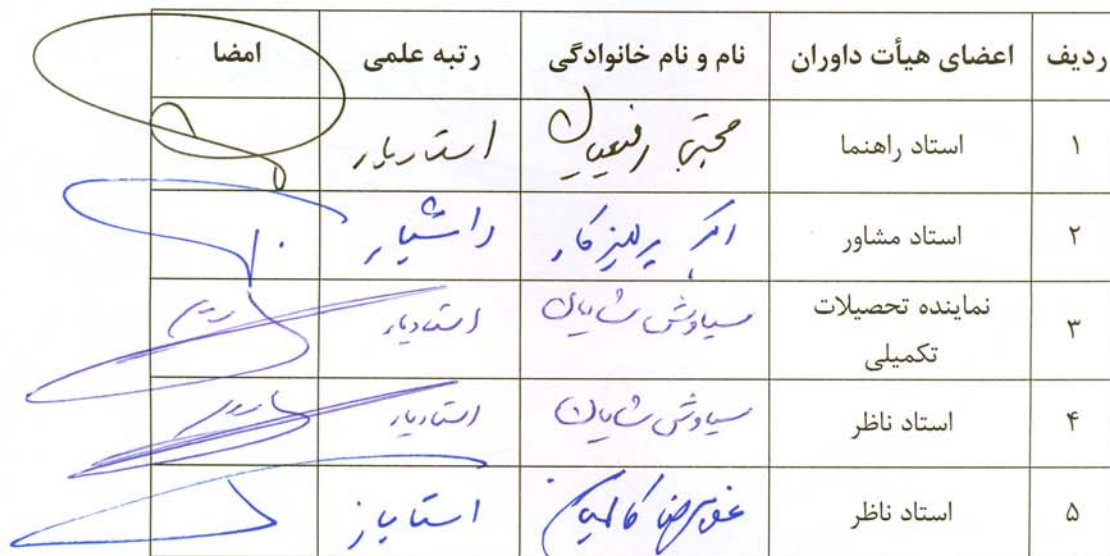 ردیف اعضای هیأت داوران نام و نام خانوادگی رتبه علمی امضا
۱ استاد راهنما مجتبی رفیعیان استادیار
۲ استاد مشاور اکبر پرهیزکار دانشیار
۳ نماینده تحصیلات تکمیلی سیاوش شایان استادیار
۴ استاد ناظر سیاوش شایان استادیار
۵ استاد ناظر استادیار